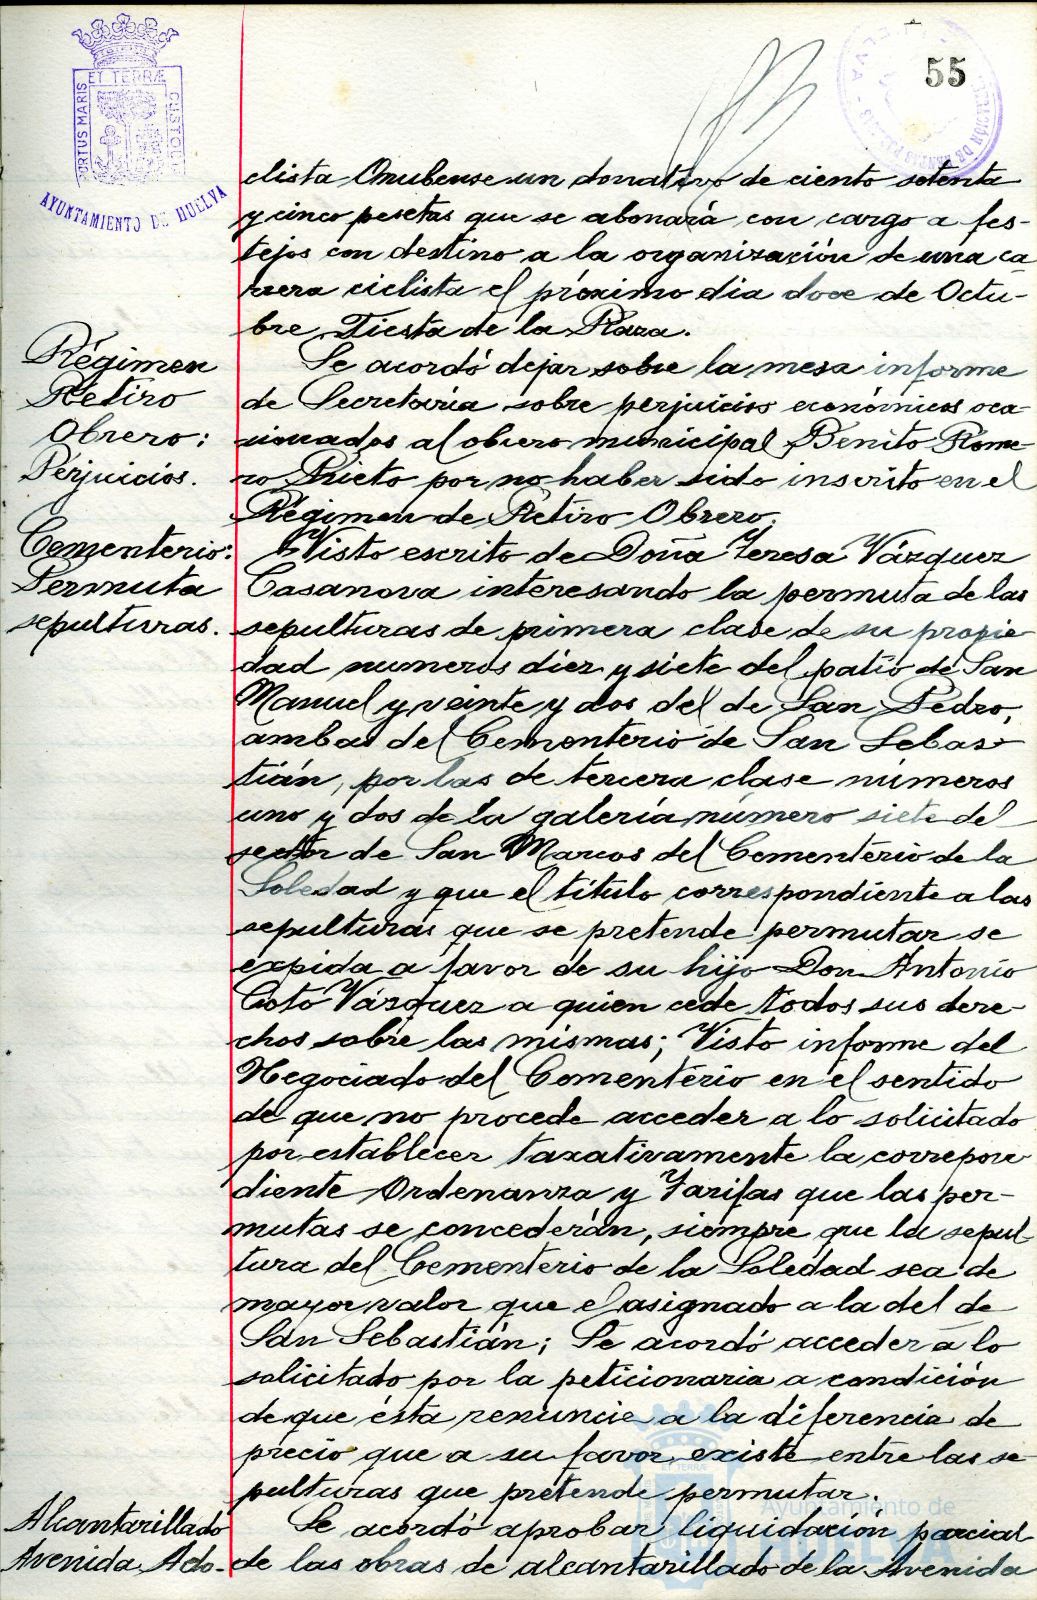 55
ET TERRÆ
PORTUS MARIS
CUSTODIA
AYUNTAMIENTO DE HUELVA
clista Onubense un donativo de ciento setenta
y cinco pesetas que se abonará con cargo a fes-
tejos con destino a la organización de una ca
rrera ciclista el próximo dia doce de Octu-
bre, Fiesta de la Raza.
Régimen
Retiro
Obrero:
Perjuicios.
Se acordó dejar sobre la mesa informe
de Secretaría sobre perjuicios económicos oca
sionados al obrero municipal Benito Rome
ro Prieto por no haber sido inscrito en el
Régimen de Retiro Obrero.
Cementerio:
Permuta
sepulturas.
Visto escrito de Doña Teresa Vázquez
Casanova interesando la permuta de las
sepulturas de primera clase de su propie
dad numeros diez y siete del patio de San
Manuel y veinte y dos del de San Pedro,
ambas del Cementerio de San Sebas-
tián, por las de tercera clase números
uno y dos de la galería número siete del
sector de San Marcos del Cementerio de la
Soledad y que el título correspondiente a las
sepulturas que se pretende permutar se
expida a favor de su hijo Don Antonio
Coto Vázquez a quien cede todos sus dere-
chos sobre las mismas; Visto informe del
Negociado del Cementerio en el sentido
de que no procede acceder a lo solicitado
por establecer taxativamente la correpon
diente Ordenanza y Tarifas que las per-
mutas se concederán, siempre que la sepul-
tura del Cementerio de la Soledad sea de
mayor valor que el asignado a la del de
San Sebastián; Se acordó acceder a lo
solicitado por la peticionaria a condición
de que ésta renuncie a la diferencia de
precio que a su favor existe entre las se
pulturas que pretende permutar.
Alcantarillado
Avenida Ado-
Se acordó aprobar liquidación parcial
de las obras de alcantarillado de la Avenida
Ayuntamiento de
HUELVA